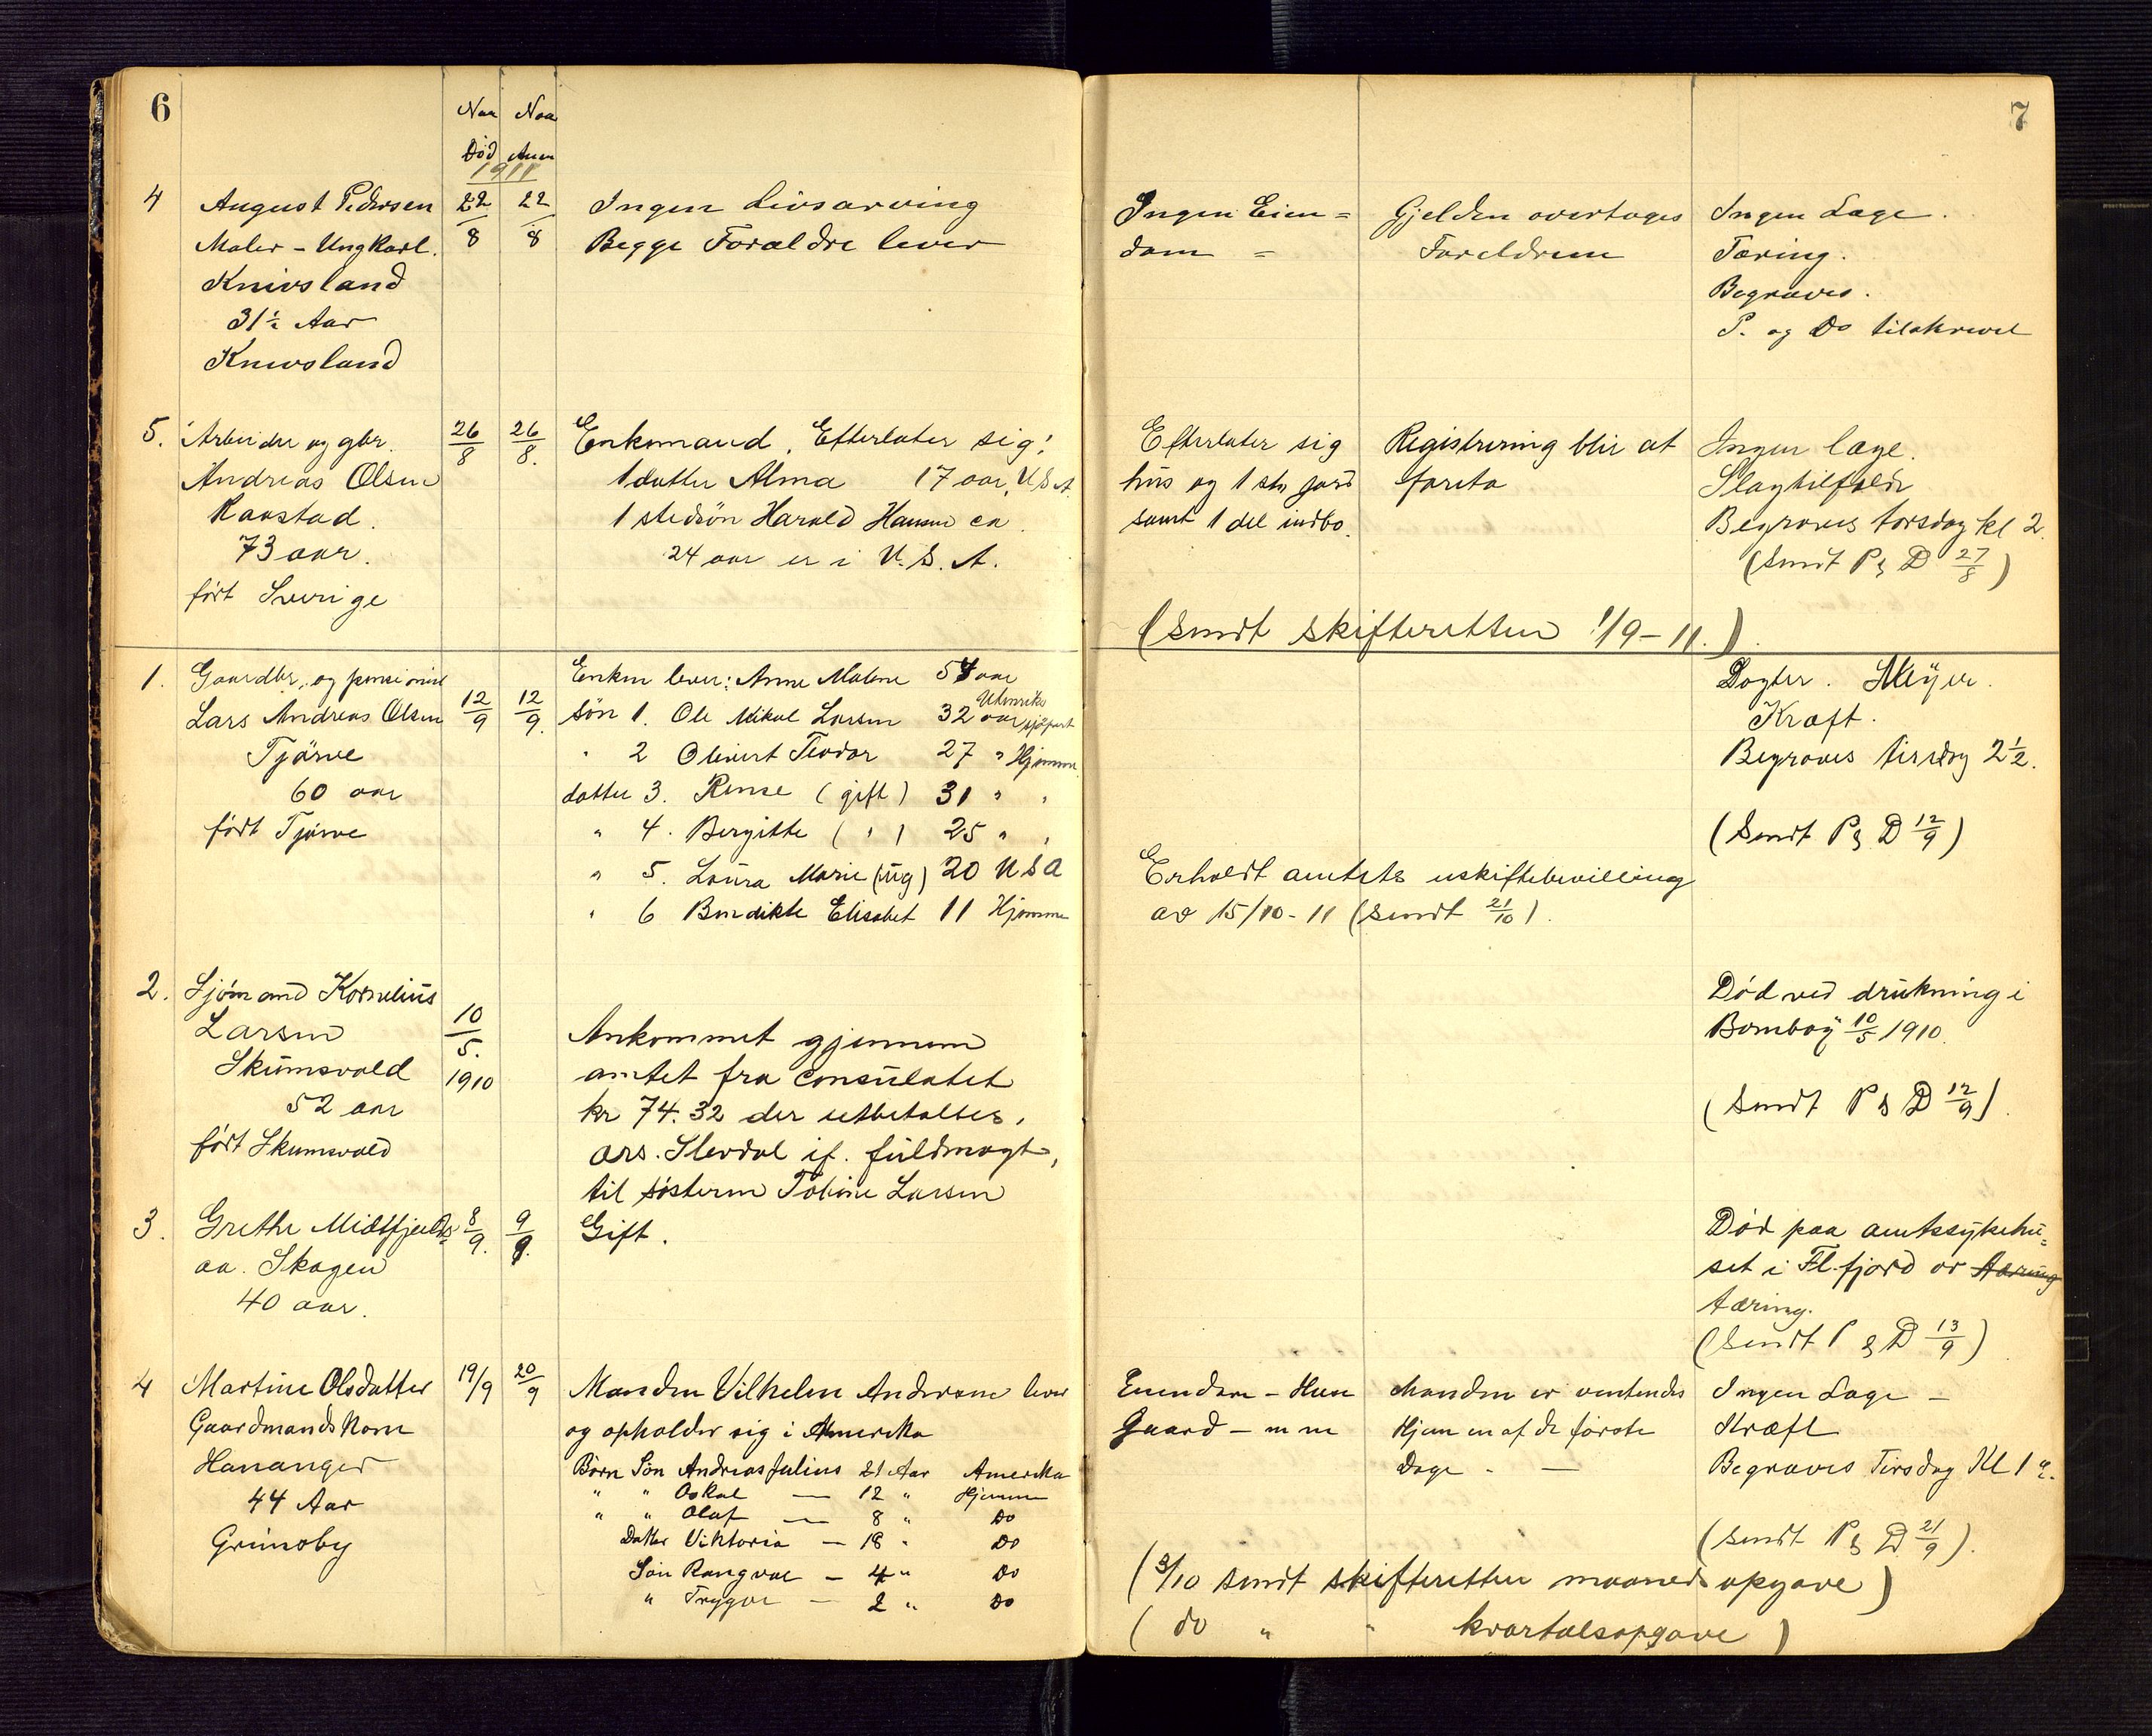 6
Naar Naar
Død Anm
1911
4 August Pedersen 22/8 22/8 Ingen Livsarving
Maler - Ungkarl. Begge Forældre lever
Knivsland
31½ Aar
Knivsland
5. Arbeider og gbr. 26/8 26/8. Enkemand. Efterlater sig:
Andreas Olsen 1 datter Alma 17 aar, USA.
Ravstad. 1 stedsön Harald Hansen ca.
73 aar. 24 aar er i U.S.A.
fört Sverige
1. Gaardbr. og pensionist Enken lever: Anne Malene 54 aar
Lars Andreas Olsen 12/9 12/9. Sön 1. Ole Mikal Larsen 32 aar Utenriks sjøfart
Tjörve " 2 Olevert Teodor 27 " Hjemme
60 aar datter 3. Rense (gift) 31 " "
fört Tjörve " 4. Bergitte ( " ) 25 " "
" 5. Laura Marie (ug) 20 USA
" 6 Bendikte Elisabet 11 Hjemme
2. Sjömand Kornelius
Larsen 10/5. Ankommet gjennem
Skumsvold 1910 amtet fra consulatet
52 aar kr 74.32 der utbetaltes,
fört Skumsvold ars. Slevdal if. fuldmagt,
til söstern Tobine Larsen
3. Grethe Midtfjelds 8/9. 9/9. Gift.
aa. Skagen
40 aar.
4 Martine Olsdatter 19/9 20/9 Manden Vilhelm Andersen lever
Gaardmandskone og opholder sig i Amerika
Hananger Börn Sön Andreas Julius 21 Aar Amerika
44 Aar " " Oskal — 12 " Hjemme
" " Olaf — 8 " Do
Grimsby Datter Viktoria — 18 " Do
Sön Rangval — 4 " Do
" Trygve — 2 " Do
7
Ingen Eien= Gjelden overtages Ingen Læge.
dom = Foreldrene Tæring.
Begraves.
P. og Do tilskrevet
Efterlater sig Registrering blir at Ingen læge.
hus og 1 stk jord foreta Slagtilfelde
samt 1 del indbo. Begraves torsdag kl 2.
(Sendt P & D 27/8)
(Sendt skifteretten 1/9-11.)
Dogter. Meÿer.
Kræft.
Begraves tirsdag 2½.
(Sendt P & D 12/9)
Erholdt amtets uskiftebevilling
av 15/10-11 (Sendt 21/10).
Död ved drukning i
Bombaÿ 10/5 1910.
(Sendt P & D 12/9).
Död paa amtssykehu=
set i Fl.fjord av
tæring.
(Sendt P & D 13/9)
Eiendom - Hus Manden er ventendes Ingen Læge -
Gaard - m m Hjem en af de förste Kræft
Dage. — Begraves Tirsdag Kl 1
(Sendt P & D 21/9).
(3/10 Sendt skifteretten maanedsopgave)
(do " " kvartalsopgave)